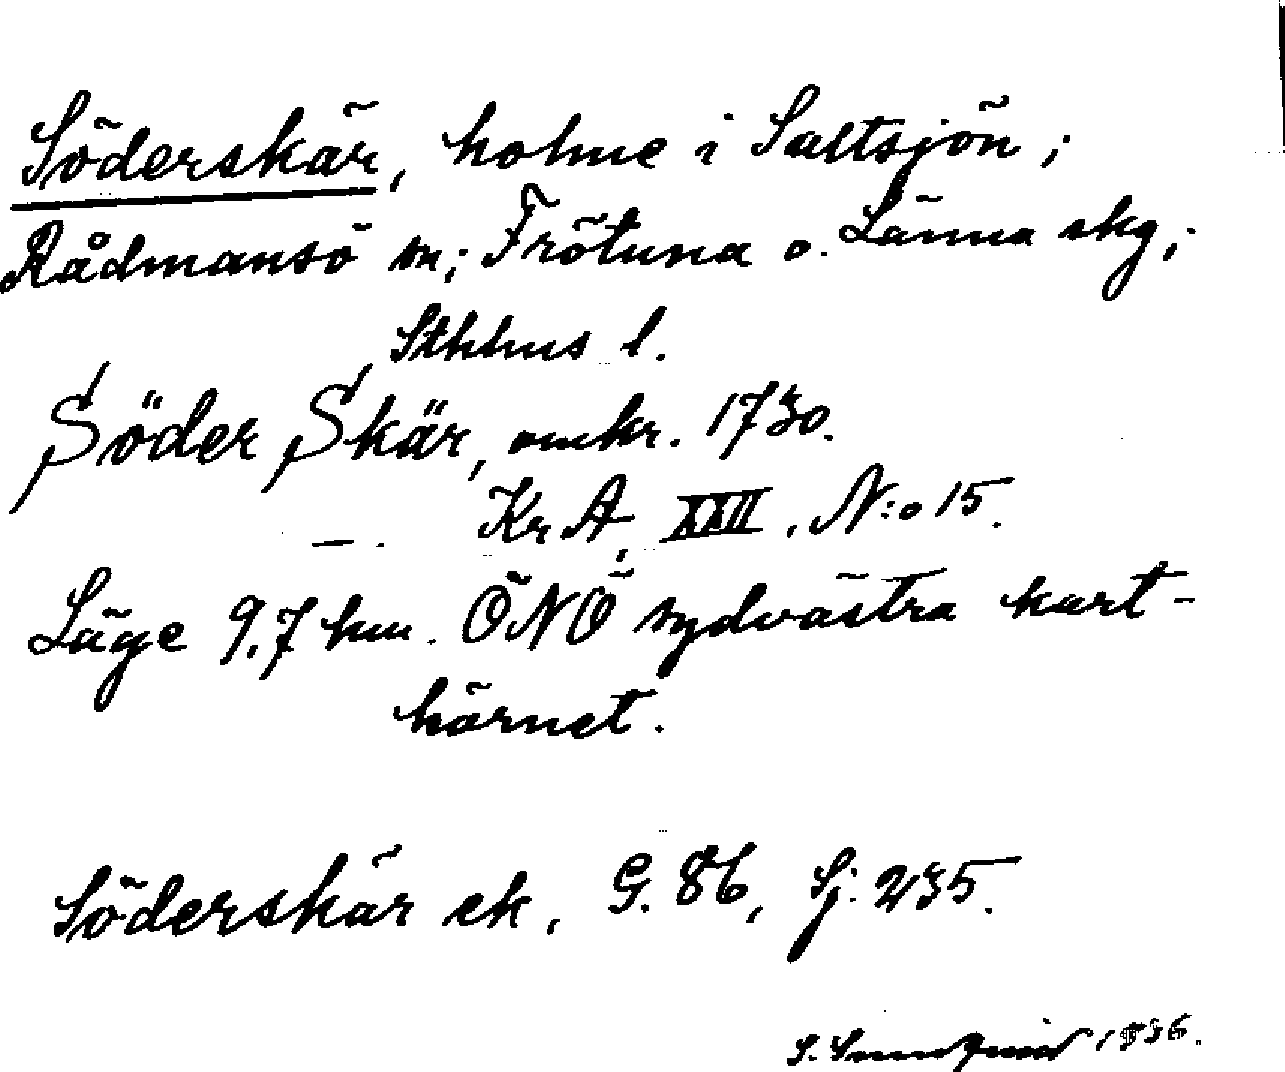 Söderskär, holme i Saltsjön;
Rådmansö sn; Frötuna o. Länna skg;
Sthlms l.
Söder Skär, omkr. 1730.
— . Kr A, XXII, N:o 15.
Läge 9.7 km. ÖNÖ sydvästra kart-
hörnet.
Söderskär ek, G. 86, Sj: 235.
S. 1936.